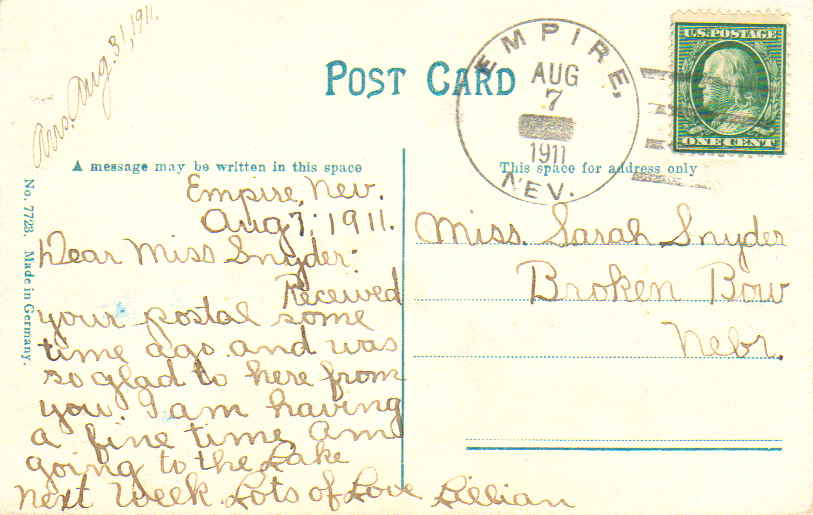 Ans. Aug. 31, 1911.
POST CARD
EMPIRE,
AUG
7
1911
NEV.
U.S. POSTAGE
ONE CENT
A message may be written in this space
This space for address only
No. 7723. Made in Germany.
Empire, Nev.
Aug 7, 1911.
Dear Miss Snyder:
Received
your postal some
time ago and was
so glad to here from
you. I am having
a fine time. Am
going to the Lake
next week. Lots of Love Lillian
Miss. Sarah Snyder
Broken Bow
Nebr.